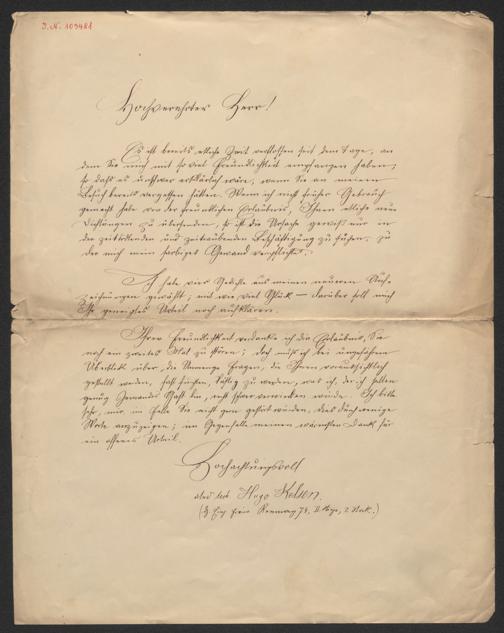 J.N. 109481
Hochverehrter Herr!
Es ist bereits etliche Zeit verflossen seit dem Tage, an
dem Sie mich mit so viel Freundlichkeit empfangen haben,
so daß es erklärlich wäre, wenn Sie an meinen
Besuch bereits vergessen hätten. Wenn ich nicht früher Gebrauch
gemacht habe von der freundlichen Erlaubnis, Ihnen etliche neue
Dichtungen zu übersenden, so ist die Ursache gewiß nur in
der und zeitraubenden Beschäftigung zu suchen, zu
der mich mein farbiges Gewand verpflichtet.
Ich habe vier Gedichte aus meinen neueren Auf-
zeichnungen gewählt; mit wie viel Glück — darüber soll mich
Ihr geneigtes Urteil noch aufklären.
Ihrer Freundlichkeit verdanke ich die Erlaubnis, Sie
noch ein zweites Mal zu stören; doch muß ich bei ungefährem
Überblick über die Menge Fragen, die Ihnen
gestellt werden, fast fürchten, lästig zu werden, was ich, der ich selten
genug Gast bin, recht schwer verwinden würde. Ich bitte
sehr, mir im Falle Sie nicht gern gestört würden, dies durch wenige
Worte anzuzeigen; im Gegenfalle meinen wärmsten Dank für
ein offenes Urteil.
Hochachtungsvoll
Hugo Kelsen.
Rennweg